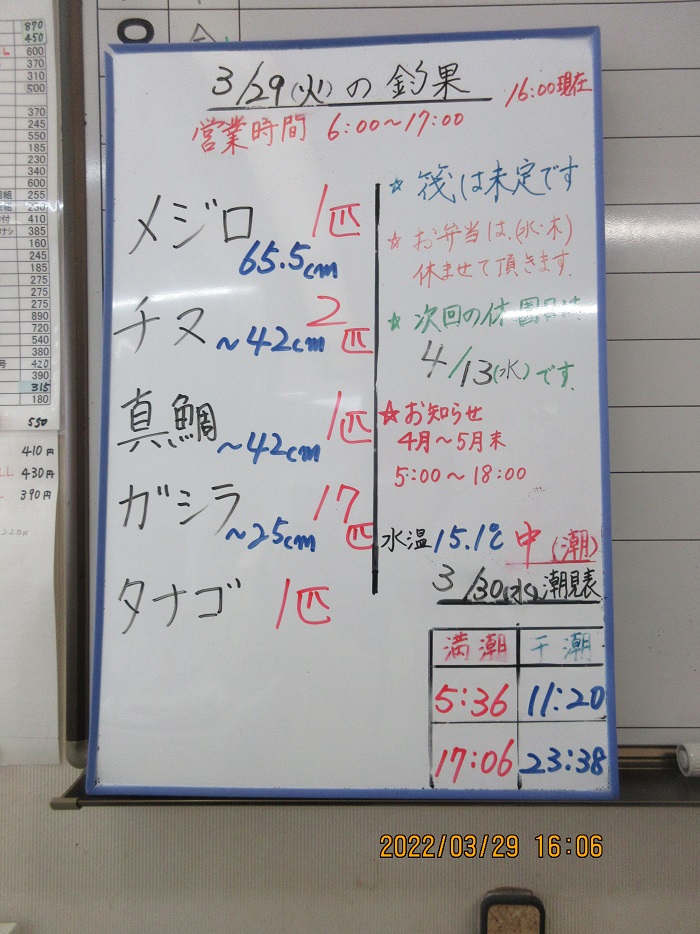 870
450
L 600
370
310
500
370
245
550
185
230
340
600
255
230
410
385
160
245
185
275
275
275
890
720
540
380
号 420
390
315
180
550
410円
LL 430円
L 390円
3/29(火)の釣果
16:00現在
営業時間 6:00〜17:00
メジロ 1匹
65.5cm
チヌ 2匹
〜42cm
真鯛 1匹
〜42cm
ガシラ 17匹
〜25cm
タナゴ 1匹
☆ 筏は未定です
☆ お弁当は、(水・木)
休ませて頂きます。
☆ 次回の休園日は
4/13(水)です。
☆お知らせ
4月〜5月末
5:00〜18:00
水温15.1℃ 中(潮)
3/30(水)潮見表
満潮 干潮
5:36 11:20
17:06 23:38
2022/03/29 16:06